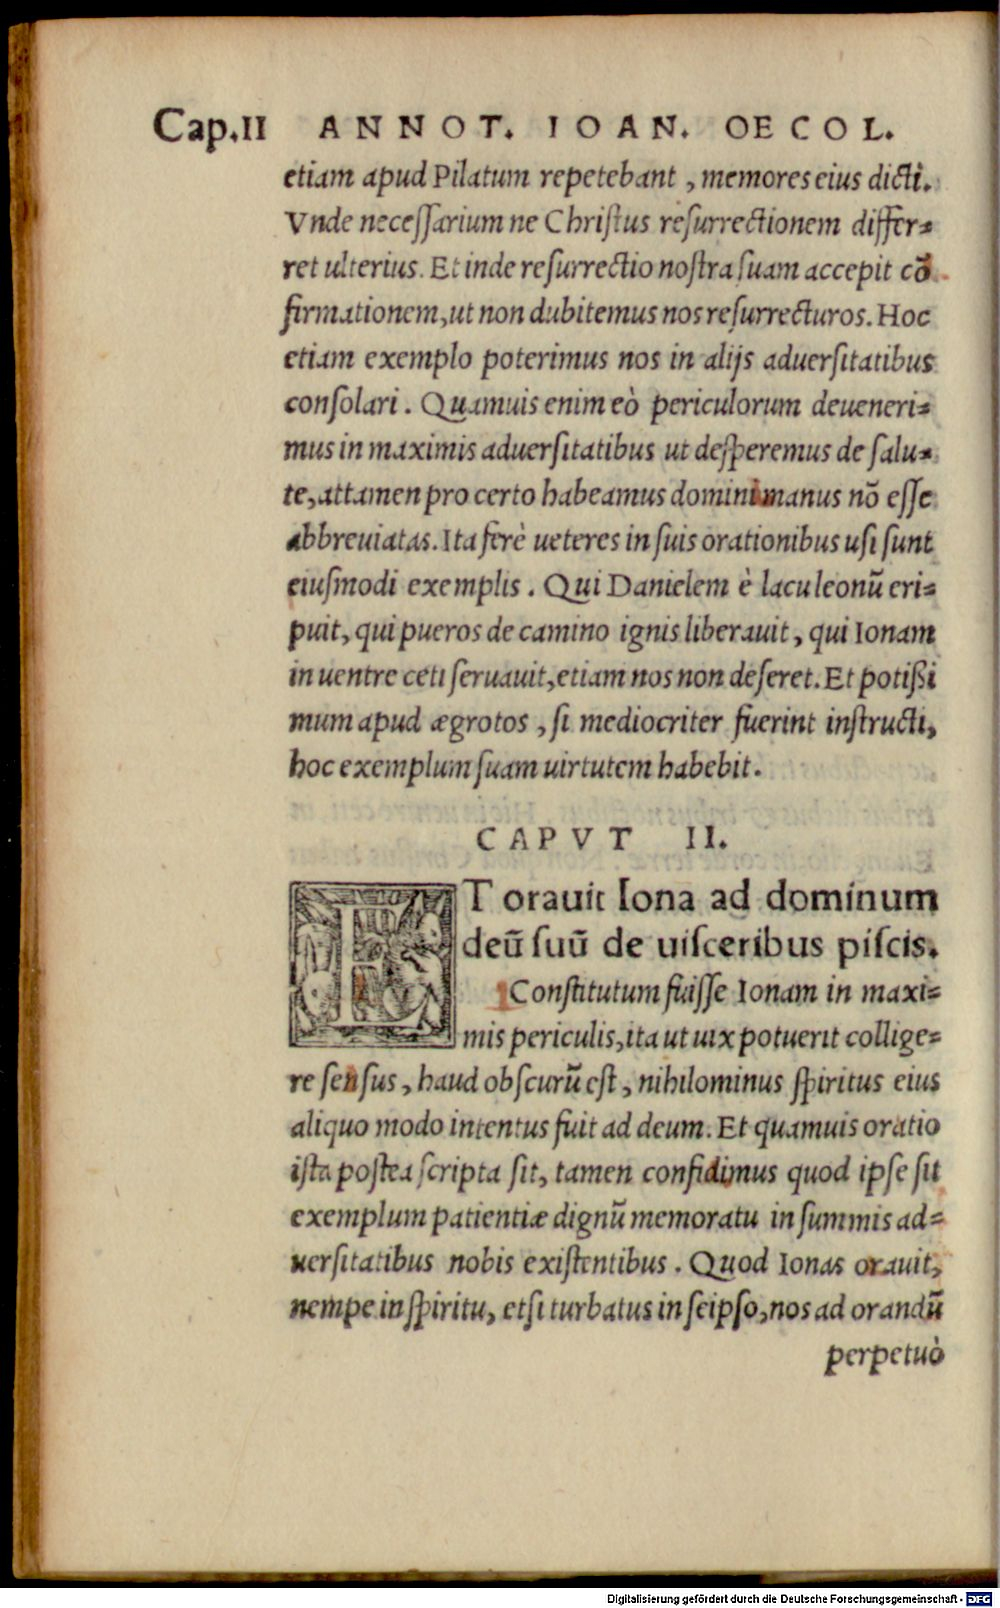 Cap.II ANNOT. IOAN. OECOL.
etiam apud Pilatum repetebant, memores eius dicti.
Vnde necessarium ne Christus resurrectionem differ-
ret ulterius. Et inde resurrectio nostra suam accepit cō
firmationem, ut non dubitemus nos resurrecturos. Hoc
etiam exemplo poterimus nos in alijs aduersitatibus
consolari. Quamuis enim eò periculorum deueneri-
mus in maximis aduersitatibus ut desperemus de salu-
te, attamen pro certo habeamus domini manus nō esse
abbreuiatas. Ita ferè ueteres in suis orationibus usi sunt
eiusmodi exemplis. Qui Danielem è lacu leonū eri-
puit, qui pueros de camino ignis liberauit, qui Ionam
in uentre ceti seruauit, etiam nos non deseret. Et potißi
mum apud ægrotos, si mediocriter fuerint instructi,
hoc exemplum suam uirtutem habebit.
CAPVT II.
ET orauit Iona ad dominum
deū suū de uisceribus piscis.
Constitutum fuisse Ionam in maxi-
mis periculis, ita ut uix potuerit collige-
re sensus, haud obscurū est, nihilominus spiritus eius
aliquo modo intentus fuit ad deum. Et quamuis oratio
ista postea scripta sit, tamen confidimus quod ipse sit
exemplum patientiæ dignū memoratu in summis ad-
uersitatibus nobis existentibus. Quod Ionas orauit,
nempe in spiritu, etsi turbatus in seipso, nos ad orandū
perpetuò
Digitalisierung gefördert durch die Deutsche Forschungsgemeinschaft - DFG